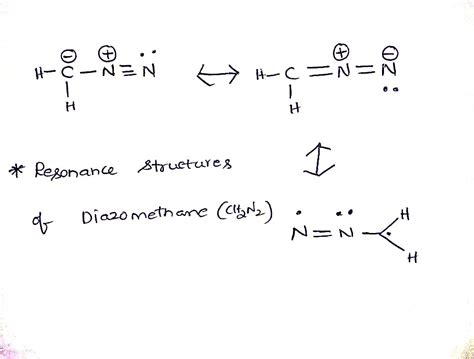 H-C-N≡N ↔ H-C=N=N
H H
* Resonance structures
of Diazomethane (CH2N2)
N=N-C H
H